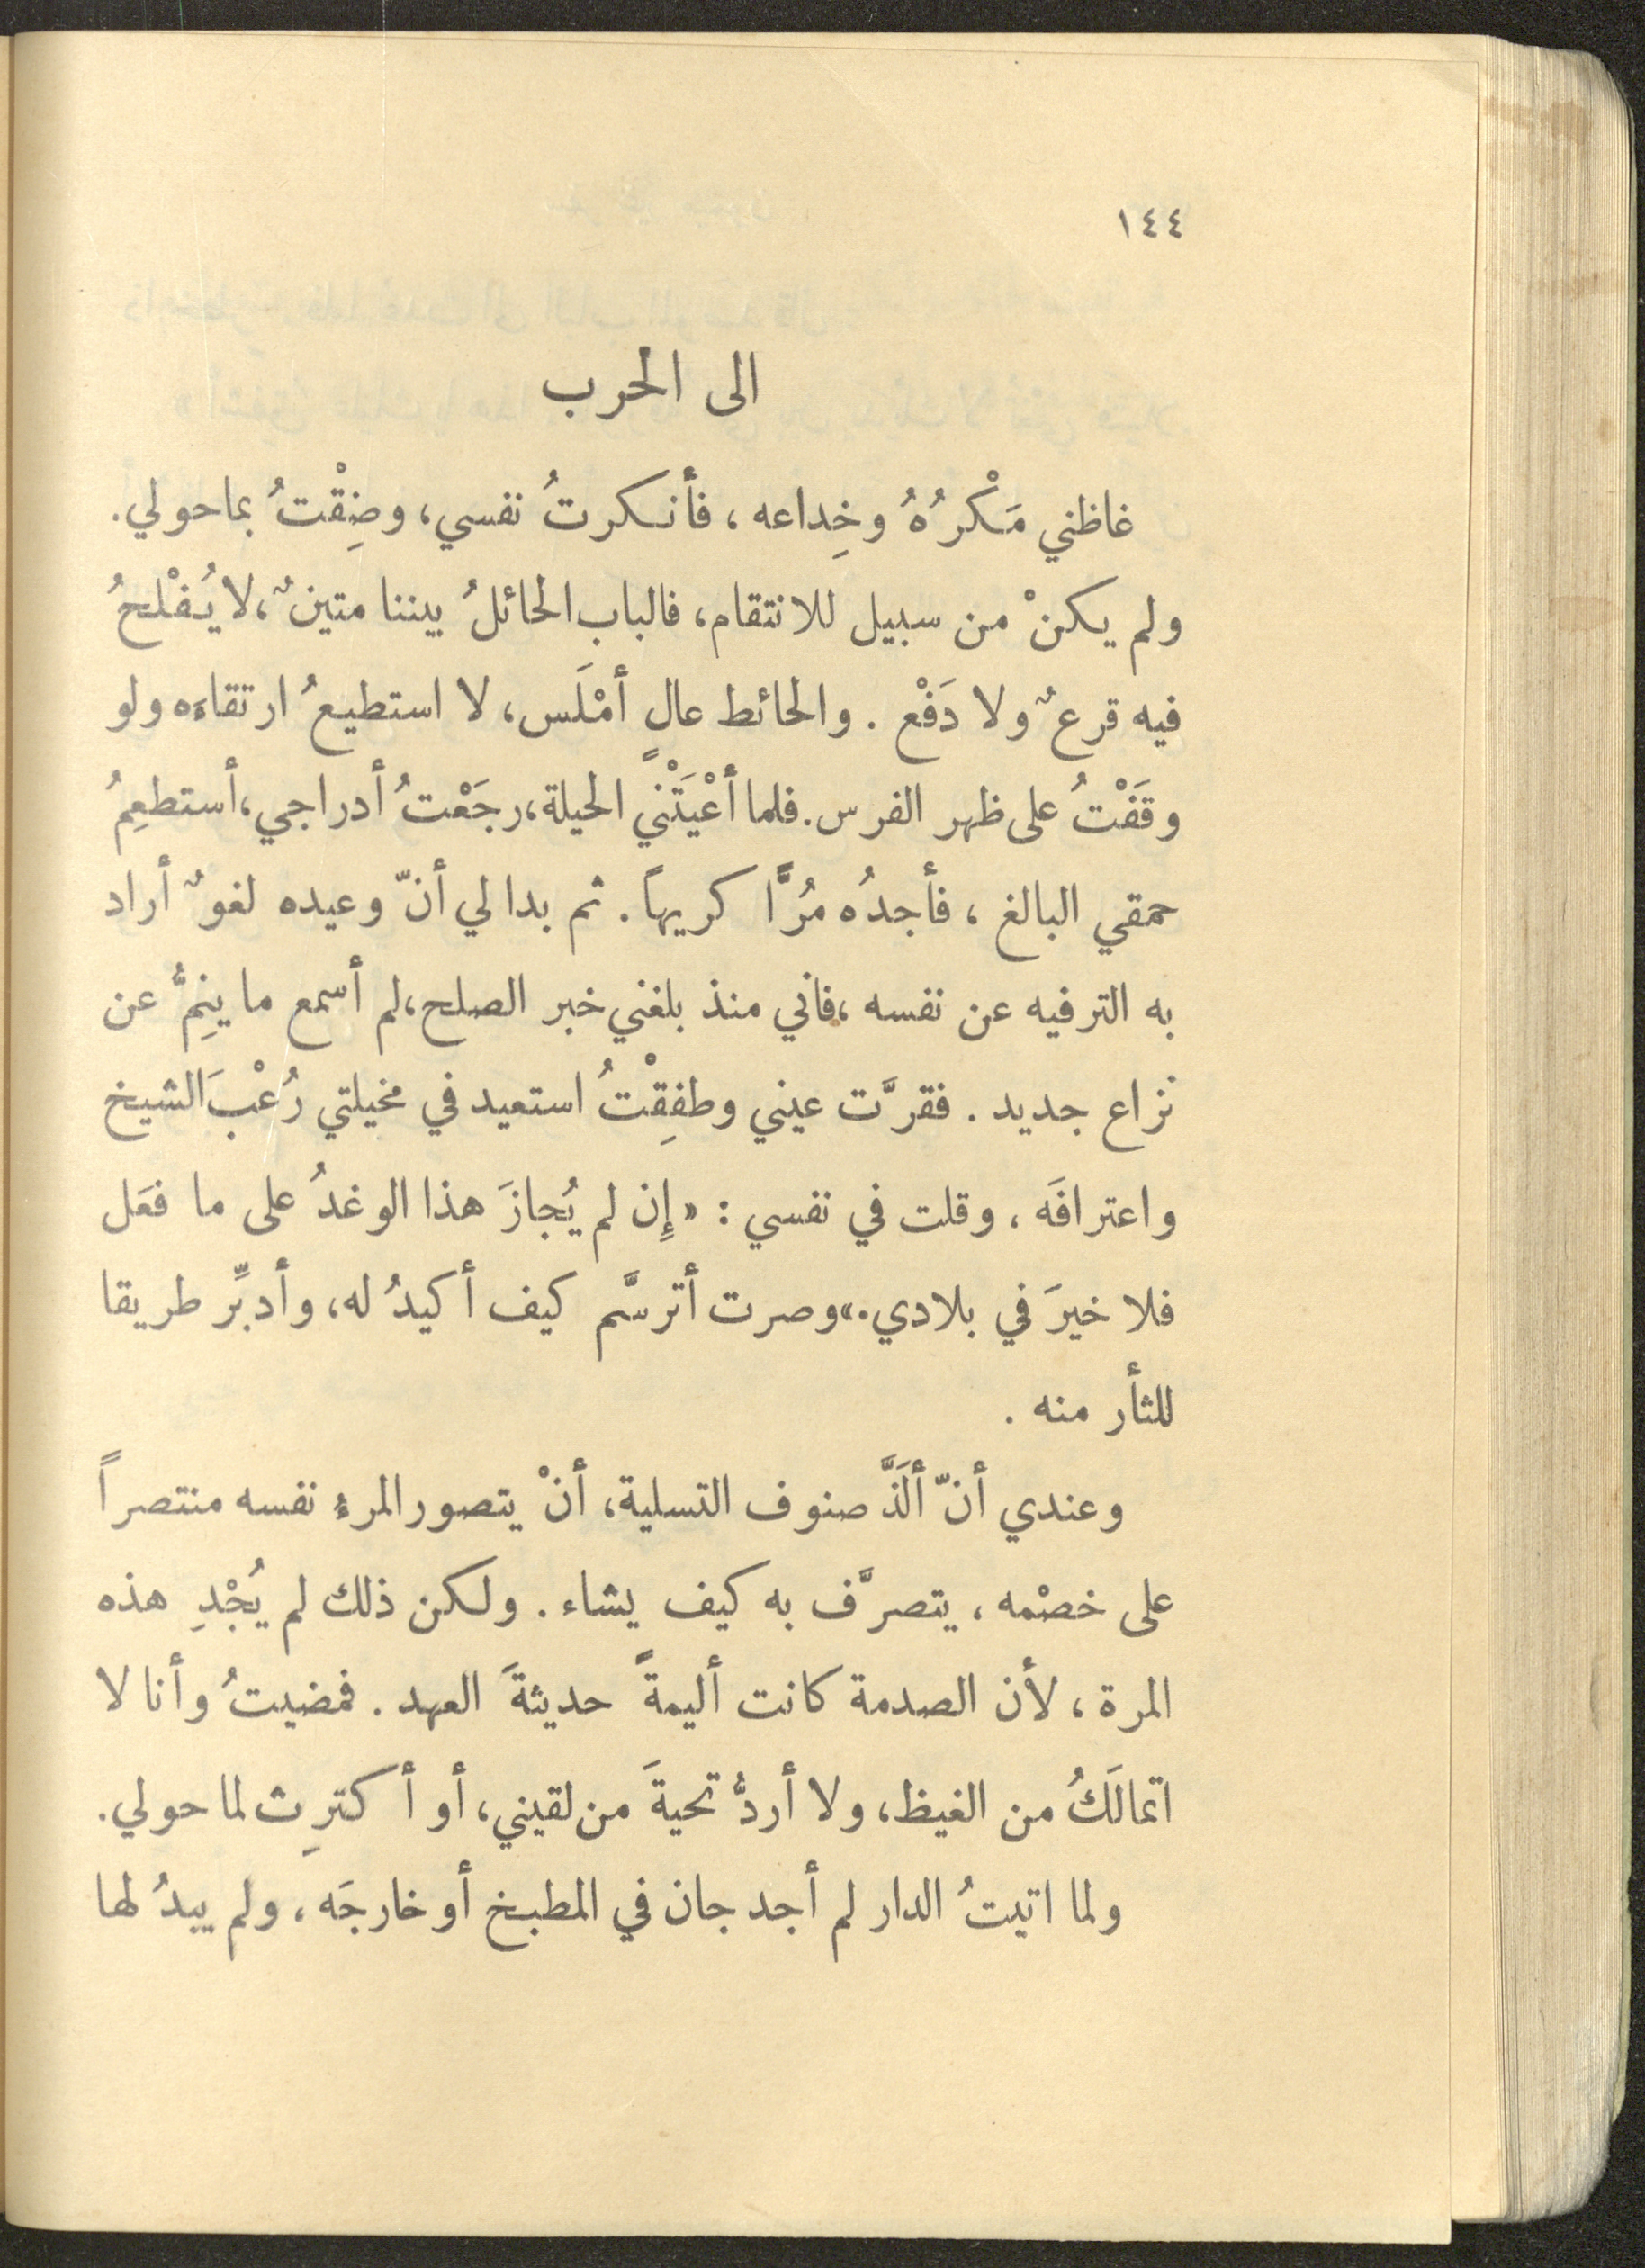 ١٤٤
الى الحرب
غاظني مَكْرُهُ وخِداعه ، فأنكرتُ نفسي، وضِقْتُ بما حولي.
ولم يكنْ من سبيل للانتقام، فالباب الحائلُ بيننا متينٌ، لا يُفْلحُ
فيه قرعٌ ولا دَفْع . والحائط عالٍ أمْلَس، لا استطيعُ ارتقاءَه ولو
وقَفْتُ على ظهر الفرس. فلما أعْيَتْني الحيلة، رجَعْتُ أدراجي، أستطعِمُ
حمقي البالغ ، فأجدُه مُرًّا كريهاً . ثم بدا لي أنّ وعيده لغوٌ أراد
به الترفيه عن نفسه ، فاني منذ بلغني خبر الصلح، لم أسمع ما ينِمُّ عن
نزاع جديد . فقرَّت عيني وطفِقْتُ استعيد في مخيلتي رُعْبَ الشيخ
واعترافَه ، وقلت في نفسي : « إِن لم يُجازَ هذا الوغدُ على ما فعَل
فلا خيرَ في بلادي.» وصرت أترسَّم كيف أكيدُ له، وأدبِّر طريقا
للثأر منه .
وعندي أنّ ألَذَّ صنوف التسلية، أنْ يتصور المرءُ نفسه منتصراً
على خصْمه ، يتصرَّف به كيف يشاء . ولكن ذلك لم يُجْدِ هذه
المرة ، لأن الصدمة كانت أليمةً حديثةَ العهد . فمضيتُ وأنا لا
اتمالَكُ من الغيظ، ولا أردُّ تحيةَ من لقيني، أو أكترِث لما حولي.
ولما اتيتُ الدار لم أجد جان في المطبخ أو خارجَه ، ولم يبدُ لها